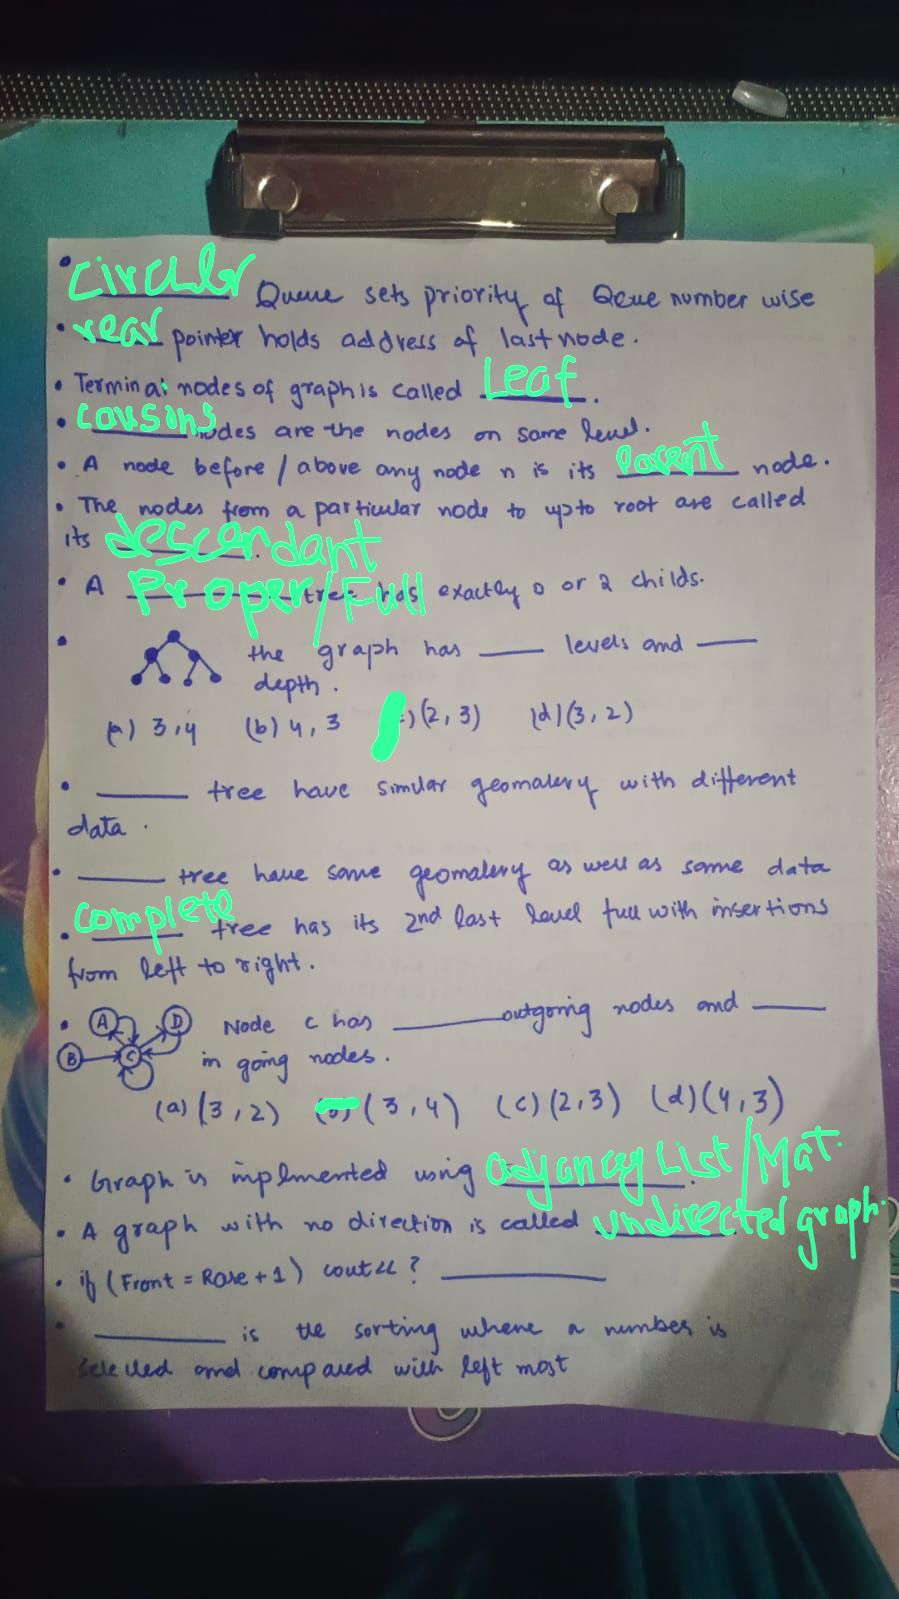 circular Queue sets priority of Qeue number wise
rear pointer holds address of last node.
Terminal nodes of graph is called Leaf.
cousons nodes are the nodes on same level.
A node before / above any node n is its parent node.
The nodes from a particular node to upto root are called
its descendant.
A Proper/Full tree has exactly 0 or 2 childs.
the graph has ____ levels and ____
depth.
(a) 3,4 (b) 4,3 c) (2,3) (d) (3,2)
______ tree have similar geomatery with different
data.
______ tree have same geomatery as well as same data
complete tree has its 2nd last level full with insertions
from left to right.
A D B C
Node c has ______ outgoing nodes and ____
in going nodes.
(a) (3,2) (b) (3,4) (c) (2,3) (d) (4,3)
Graph is implmented using adjancey List/Mat.
A graph with no direction is called undirected graph.
if (Front = Rare + 1) cout<< ? ______
______ is the sorting where a number is
selected and compared with left most